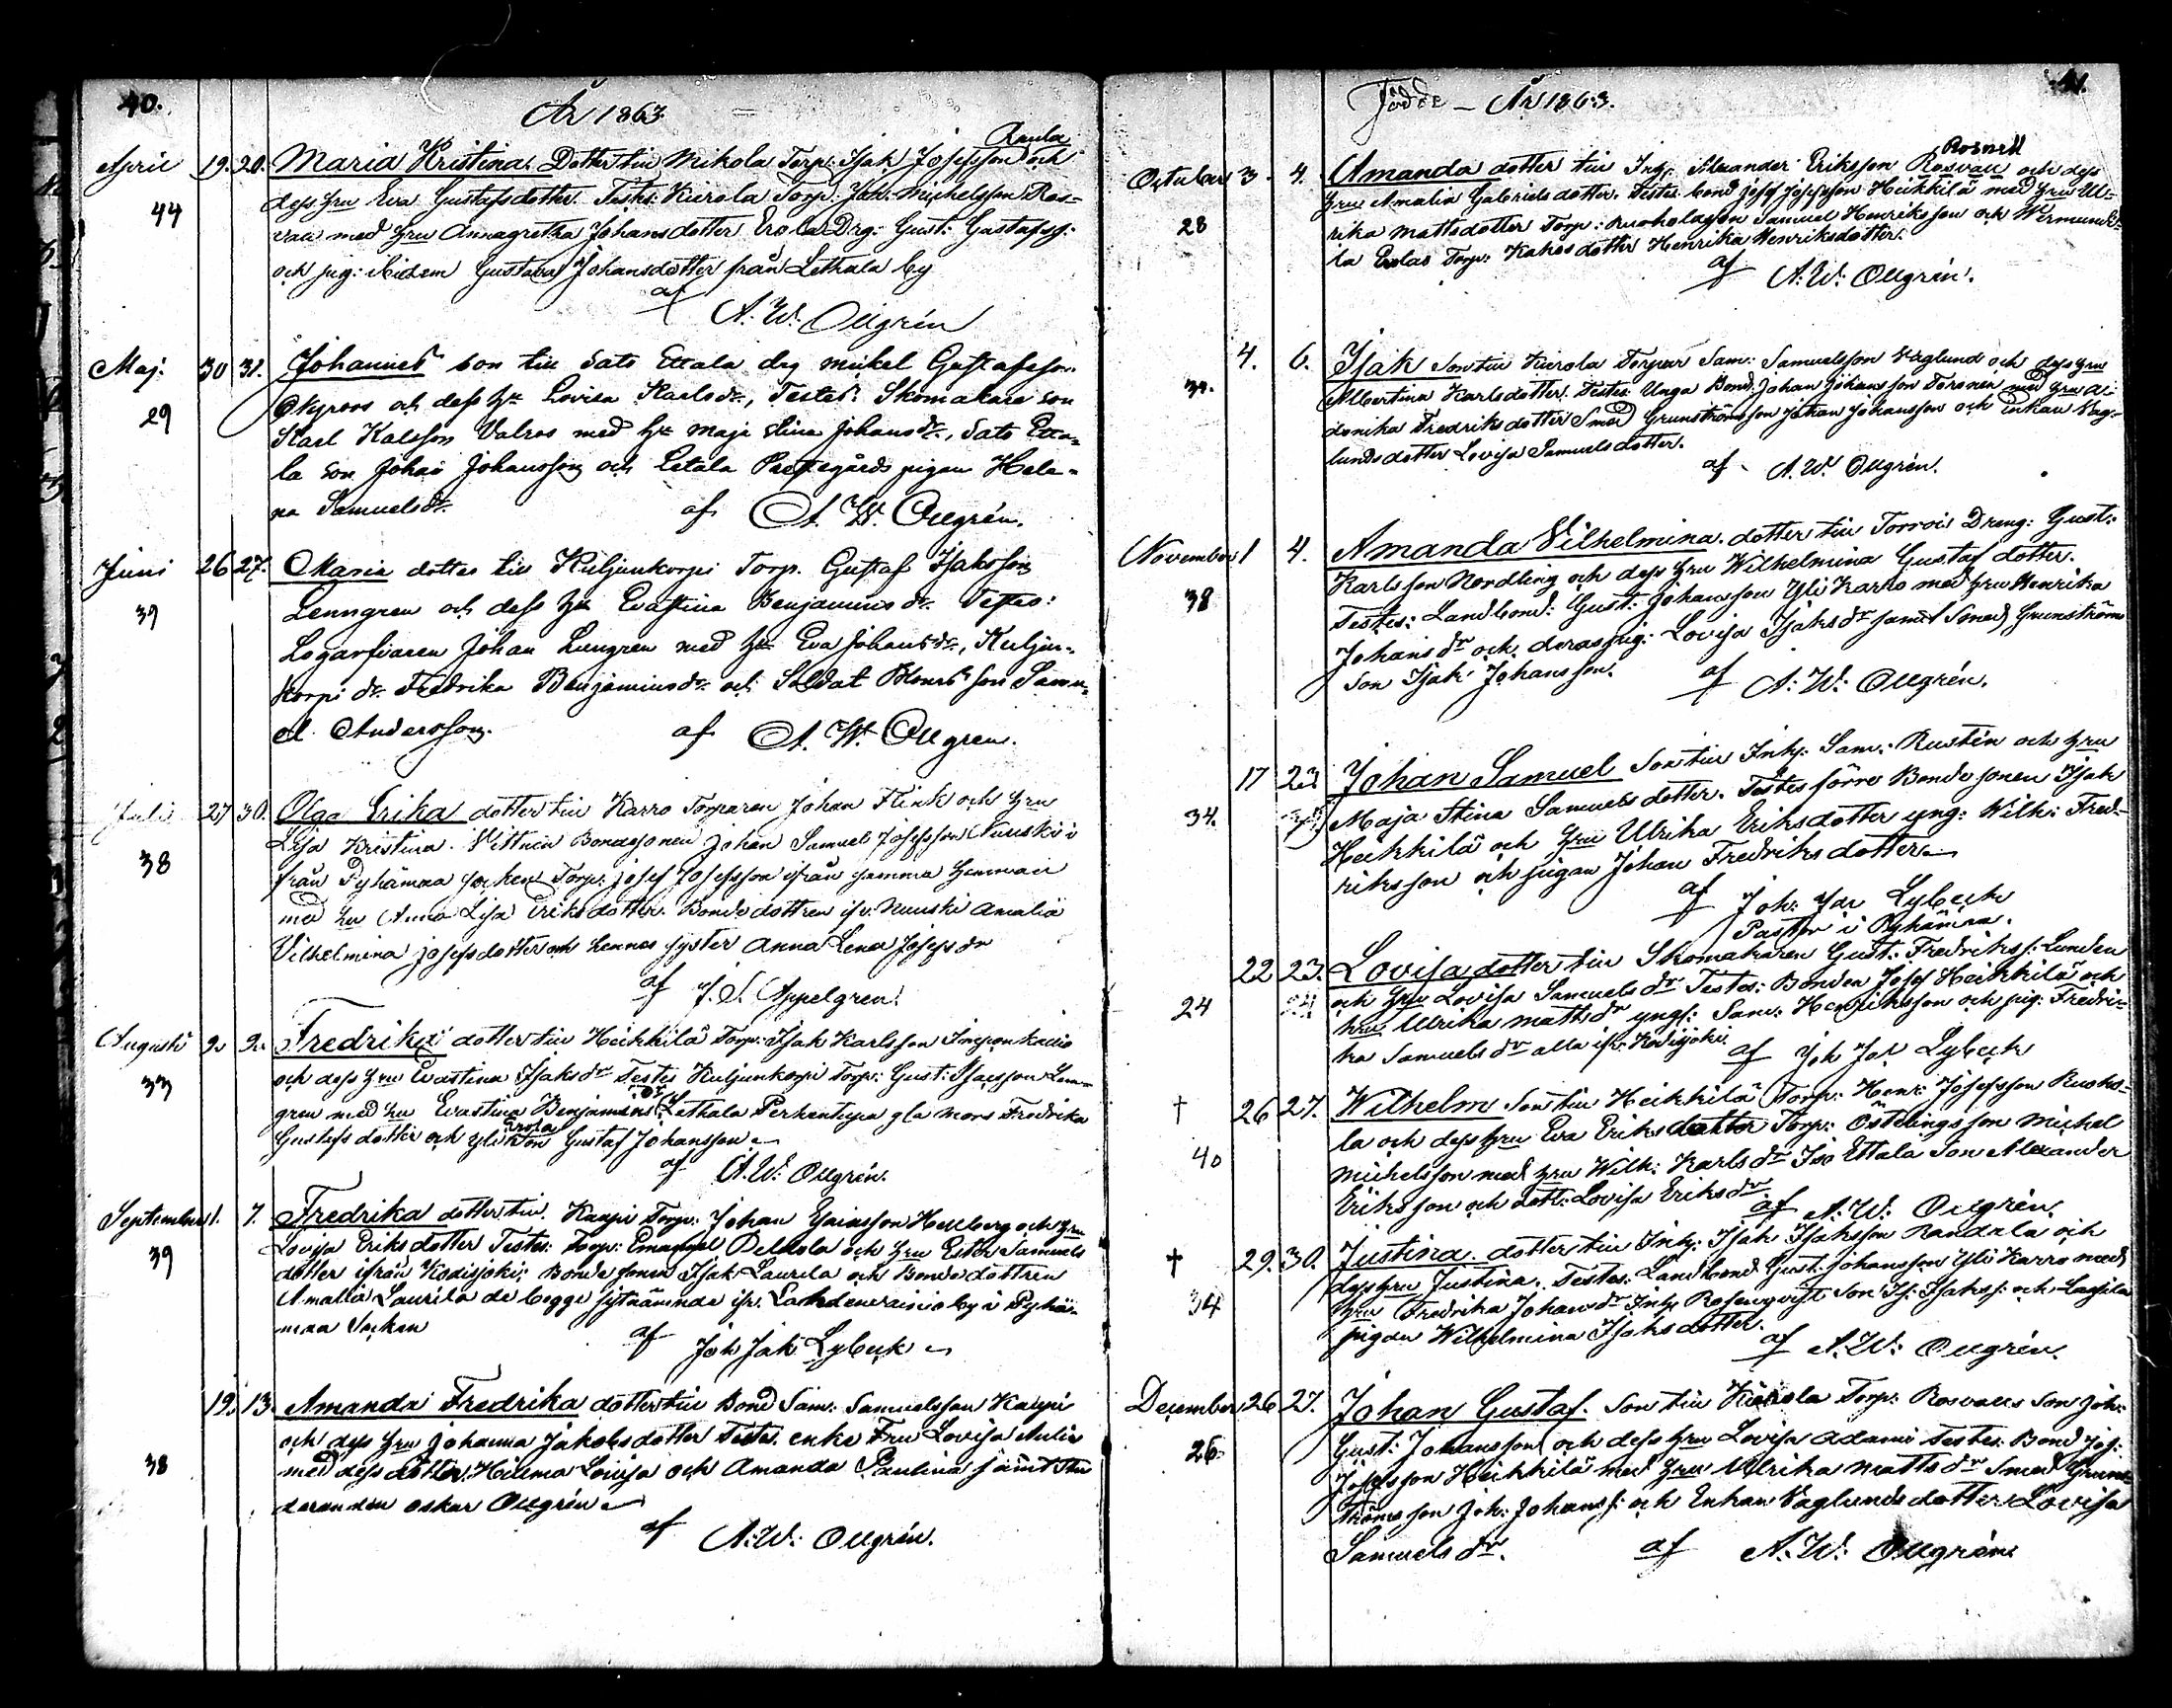 40.
År 1863
Raula
April 19. 20. Maria Kristina. Dotter till Mikola Torp. Isak Josefsson och
44 dess hru Eva Gustafsdotter. Testes: Kierola Torp. Joh. Michelsson Ros-
vall med hru Annagretha Johansdotter Erola Drg: Gust: Gustafss:
och pig: ibidem Gustava Johansdotter från Lethala by
af
A. W. Ollgrén
Maj: 30 31. Johannes son till Sato Ettala drg Mickel Gustafsson
29 och dess h Lovisa Karlsdr, Testes: Skomakare son
Karl Kalsson Valros med h Maja Stina Johansdr, Sato Etta-
la son Johan Johansson och Letala Prestegårds pigan Hele-
na Samuelsdr. af A. W. Ollgrén.
Juni 26 27. Maria dotter till Kuljunkorpi Torp. Gustaf Isaksson
39 Lenngren och dess h Evastina Benjaminsdr. Testes:
Logarfiaren Johan Lengren med h Eva Johansdr, Kuljun-
korpi dr Fredrika Benjaminsdr och Soldat son Samu-
el Andersson. af A. W. Ollgren.
Juli 27 30. Olga Erika dotter till Karro Torparen Johan Flink och hru
38 Lisa Kristina. Vittnen Bondesonen Johan Samuel Josefsson Nuuski i
från Pyhämaa socken Torp: Josef Josefsson ifrån samma hemman
med hu Anna Lisa Eriksdotter. Bondedottren ifr. Nuuski Amalia
Vilhelmina Josefsdotter och hennes syster Anna Lena Josefsdr
af J. S. Appelgren.
Augusti 9. 9. Fredrika dotter till Heikkilä Torp: Isak Karlsson
33 och dess hru Evastina Isaksdr Testes Kuljunkorpi Torp: Gust: Isacsson Len-
gren med hu Evastina Benjamins dr Lethala gla mors Fredrika
Erola
Gustafsdotter och Yli son Gustaf Johansson
af A. W. Ollgrén.
September 1. 7. Fredrika dotter till Kaapi Torp: Johan Esaiasson Hellberg och hru
39 Lovisa Eriksdotter Testes: Torp: Emanuel Pelkola och hru Ester Samuels
dotter ifrån Kodisjoki: Bonde sonen Isak Laurila och Bonde dottren
Amalia Laurila de begge sistnämnda ifr. by i Pyhä-
maa Socken af Joh Jak Lybeck
12. 13. Amanda Fredrika dotter till Bond Sam: Samuelsson Kaapi
38 och dess hru Johanna Jakobsdotter Testes. enke Fru Lovisa
med dess dotter Hilma Lovisa och Amanda Paulina samt Stu
deranden Oskar Ollgrén
af A. W. Ollgrén.
41.
Födde – År 1863.
Rosnell
October 3. 4. Amanda dotter till Inh: Alexander Eriksson Rosvall och dess
28 hru Amalia Gabrielsdotter. Testes: bond Josef Josefsson Heikkilä med hru Ul-
rika Mattsdotter Torp: Ruoholasson Samuel Henriksson och Wermund-
la Torp: Kahos dotter Henrika Henriksdotter.
af A. W. Ollgrén.
4. 6. Isak Son till Kierola Torpar Sam: Samuelsson Vaglund och dess hru
34. Albertina Karlsdotter. Testes: Unga Bond: Johan Johansson Toronen med hru
Fredriksdotter Smed Grunströms son Johan Johansson och Enkan Vag-
lunds dotter Lovisa Samuelsdotter.
af A. W. Ollgrén.
November 1 4. Amanda Vilhelmina. dotter till Torrois Dreng: Gust:
38 Karlsson Nordling och dess hru Wilhelmina Gustafdotter.
Testes: Landbond: Gust: Johansson Yli Karro med hru Henrika
Johansdr och deras pig: Lovisa Isaksdr samt Smed Grunströms
Son Isak Johansson. af A. W. Ollgrén.
17 23 Johan Samuel Son till Inh: Sam: Rustén och hru
34. Maja Stina Samuelsdotter. Testes förre Bonde sonen Isak
Heikkilä och hru Ulrika Eriksdotter yng: Wilh: Fred-
riksson och pigan Johan Fredriksdotter
af Joh: Jak Lybeck
Pastor i Pyhämaa.
22 23. Lovisa dotter till Skomakaren Gust: Fredrikss: Lunden
24 och hru Lovisa Samuelsdr Testes: Bonden Josef Heikkilä och
hru Ulrika Mattsdr yngl: Sam: Henriksson och pig: Fredri-
ka Samuelsdr alla ifr: Kodisjoki. af Joh Jak Lybeck
† 26 27. Wilhelm Son till Heikkilä Torp: Henr: Josefsson Ruoho-
40 la och dess hru Eva Eriksdotter Torp: Östelings son Michel
Michelsson med hru Wilh: Karlsdr Iso Ettala Son Alexander
Eriksson och dott: Lovisa Eriksdr. af A. W. Ollgrén.
† 29. 30. Justina. dotter till Inh: Isak Isaksson Randala och
34 dess hru Justina. Testes: Landbond Gust: Johansson Yli Karro med
hru Fredrika Johansdr Inh: Rosenqvist Son Is: Isakss: och
pigan Wilhelmina Isaksdotter. af A. W. Ollgrén.
December 26 27. Johan Gustaf. Son till Kierola Torp: Rosvalls Son Joh:
26. Gust: Johansson och dess hru Lovisa Adami Testes: Bond Jos:
Josefsson Heikkilä med hru Ulrika Mattsdr Smed Grun-
ströms son Joh: Johanss: och Enkan Vaglunds dotter Lovisa
Samuelsdr. af A. W. Ollgrén.